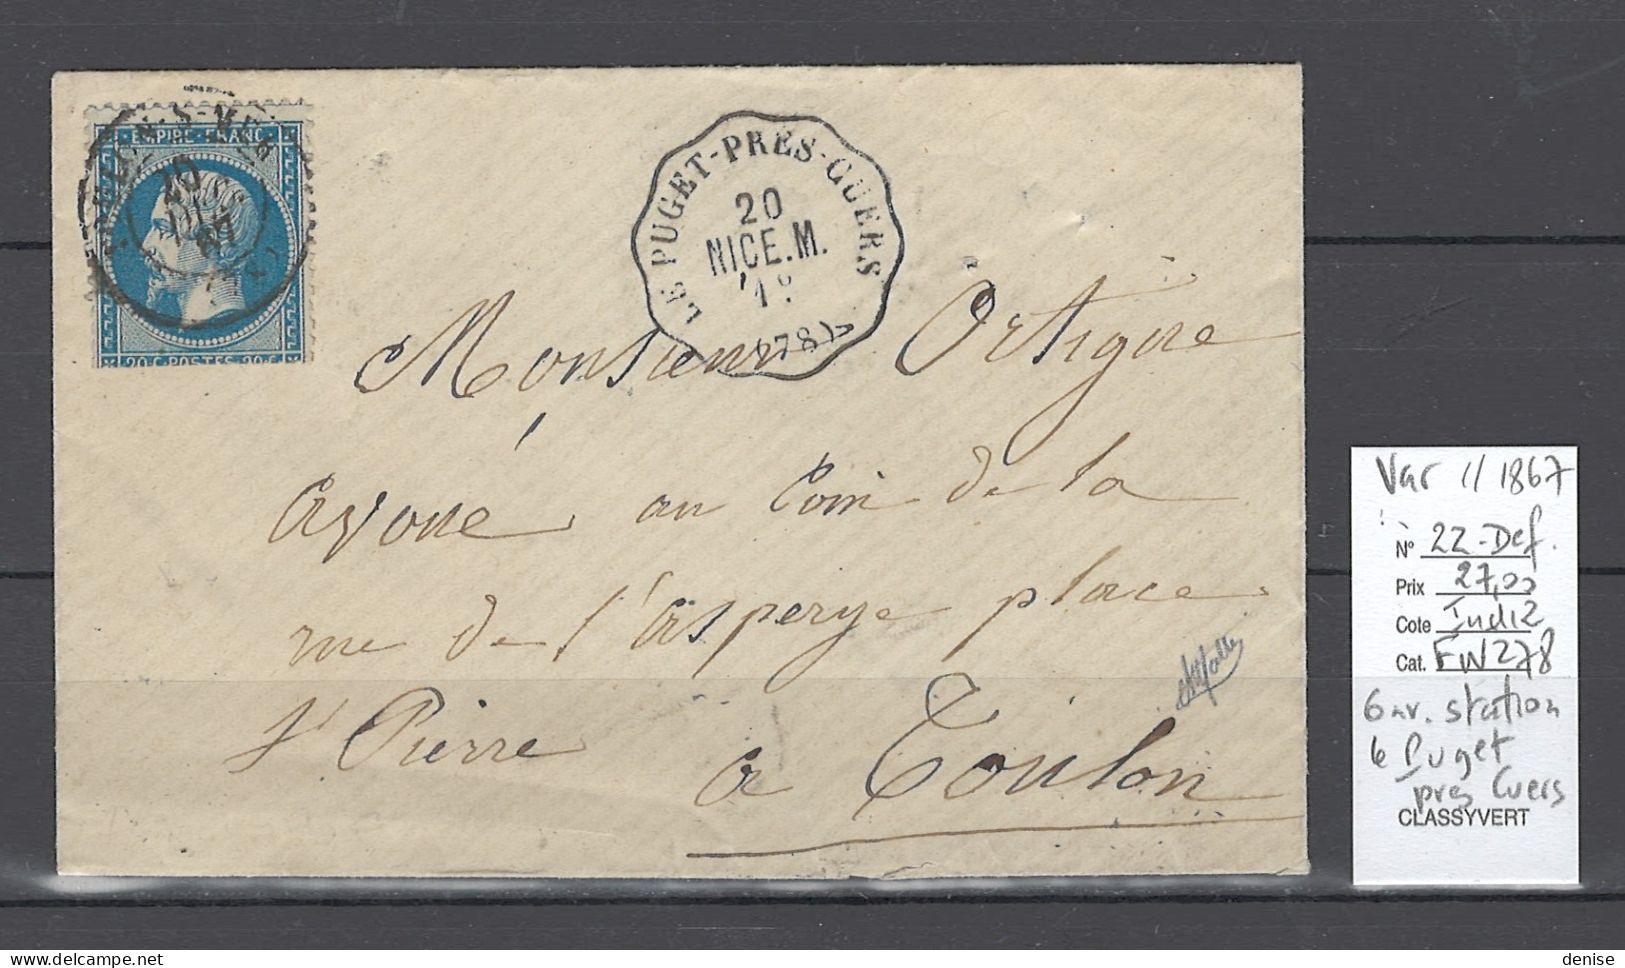 EMPIRE FRANC
20 C POSTES 20 C
S-MER
20
67
LE PUGET-PRES-CUERS
20
NICE.M.
1°
(78)
Monsieur Ortigue
avoué au Coin de la
rue de l'asperge place
St Pierre a Toulon
Var // 1867
N° 22-Def.
Prix 27,00
Cote Indi2
Cat. FW278
Gar. station
le Puget
pres Cuers
CLASSYVERT
delcampe.net
denise